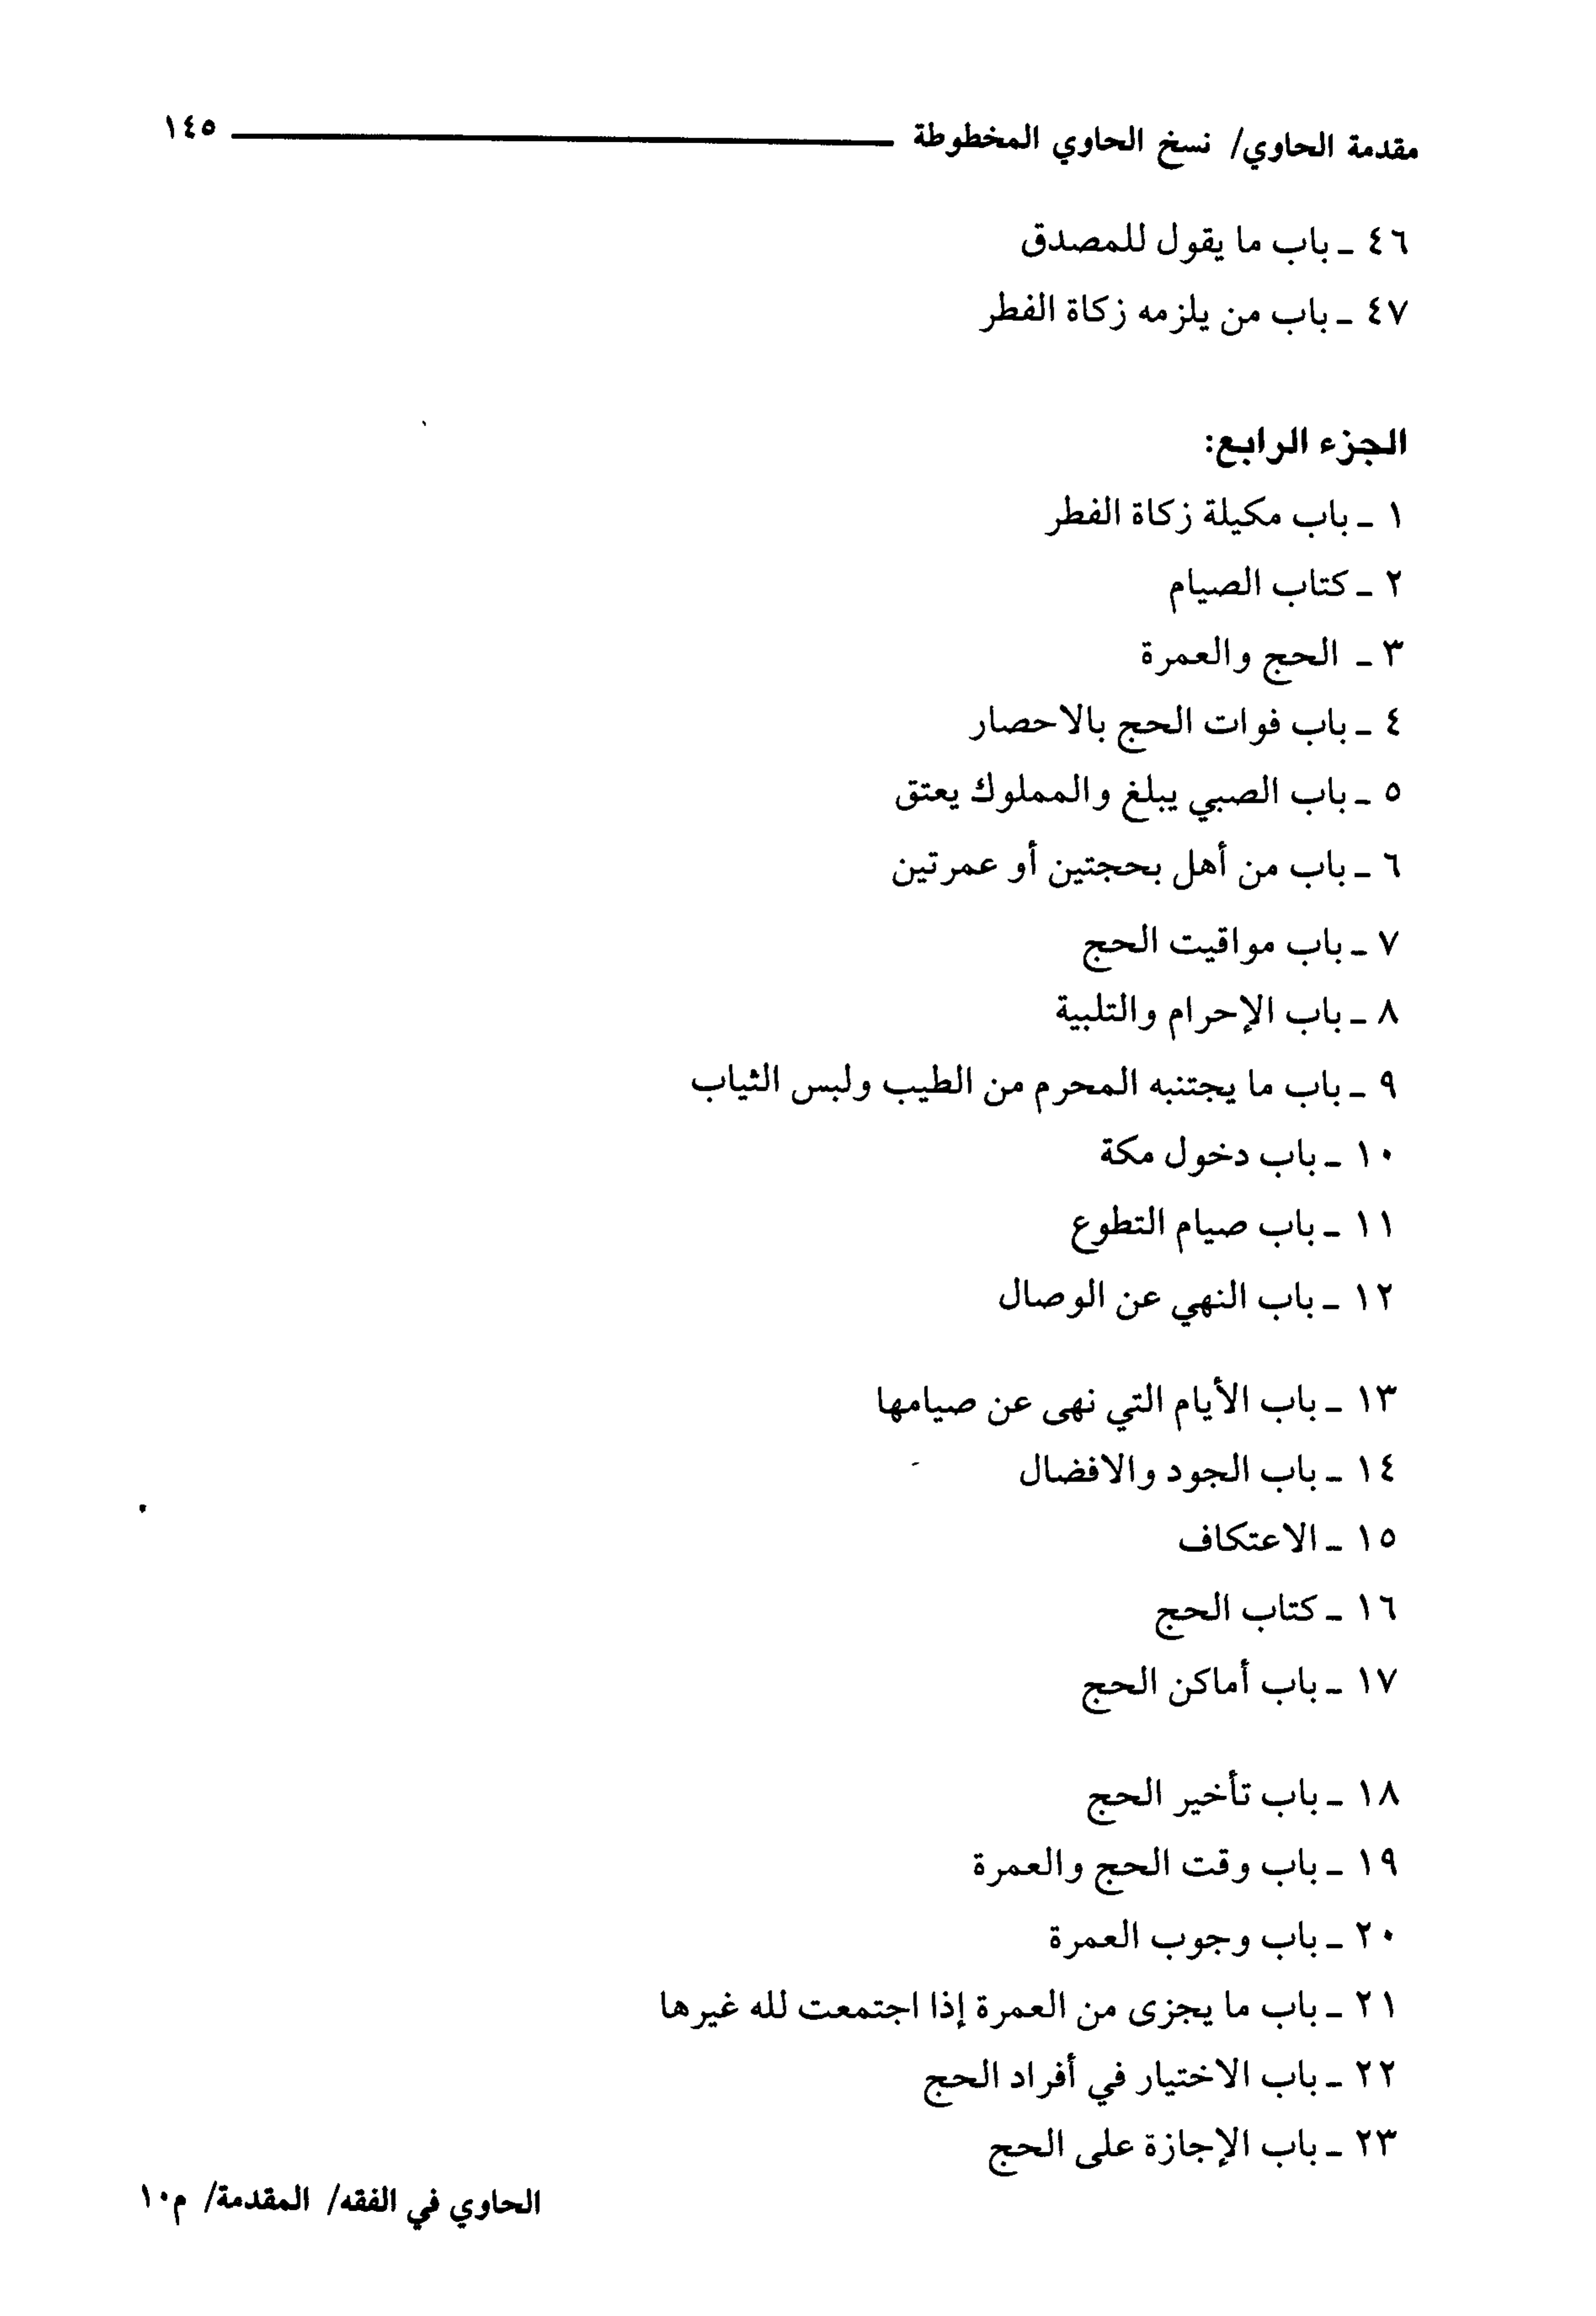 مقدمة الحاوي/ نسخ الحاوي المخطوطة ١٤٥
٤٦ - باب ما يقول للمصدق
٤٧ - باب من يلزمه زكاة الفطر
الجزء الرابع:
١ - باب مكيلة زكاة الفطر
٢ - كتاب الصيام
٣ - الحج والعمرة
٤ - باب فوات الحج بالاحصار
٥ - باب الصبي يبلغ والمملوك يعتق
٦ - باب من أهل بحجتين أو عمرتين
٧ - باب مواقيت الحج
٨ - باب الإحرام والتلبية
٩ - باب ما يجتنبه المحرم من الطيب ولبس الثياب
١٠ - باب دخول مكة
١١ - باب صيام التطوع
١٢ - باب النهي عن الوصال
١٣ - باب الأيام التي نهى عن صيامها
١٤ - باب الجود والافضال
١٥ - الاعتكاف
١٦ - كتاب الحج
١٧ - باب أماكن الحج
١٨ - باب تأخير الحج
١٩ - باب وقت الحج والعمرة
٢٠ - باب وجوب العمرة
٢١ - باب ما يجزى من العمرة إذا اجتمعت لله غيرها
٢٢ - باب الاختيار في أفراد الحج
٢٣ - باب الإجازة على الحج
الحاوي في الفقه/ المقدمة/ م١٠